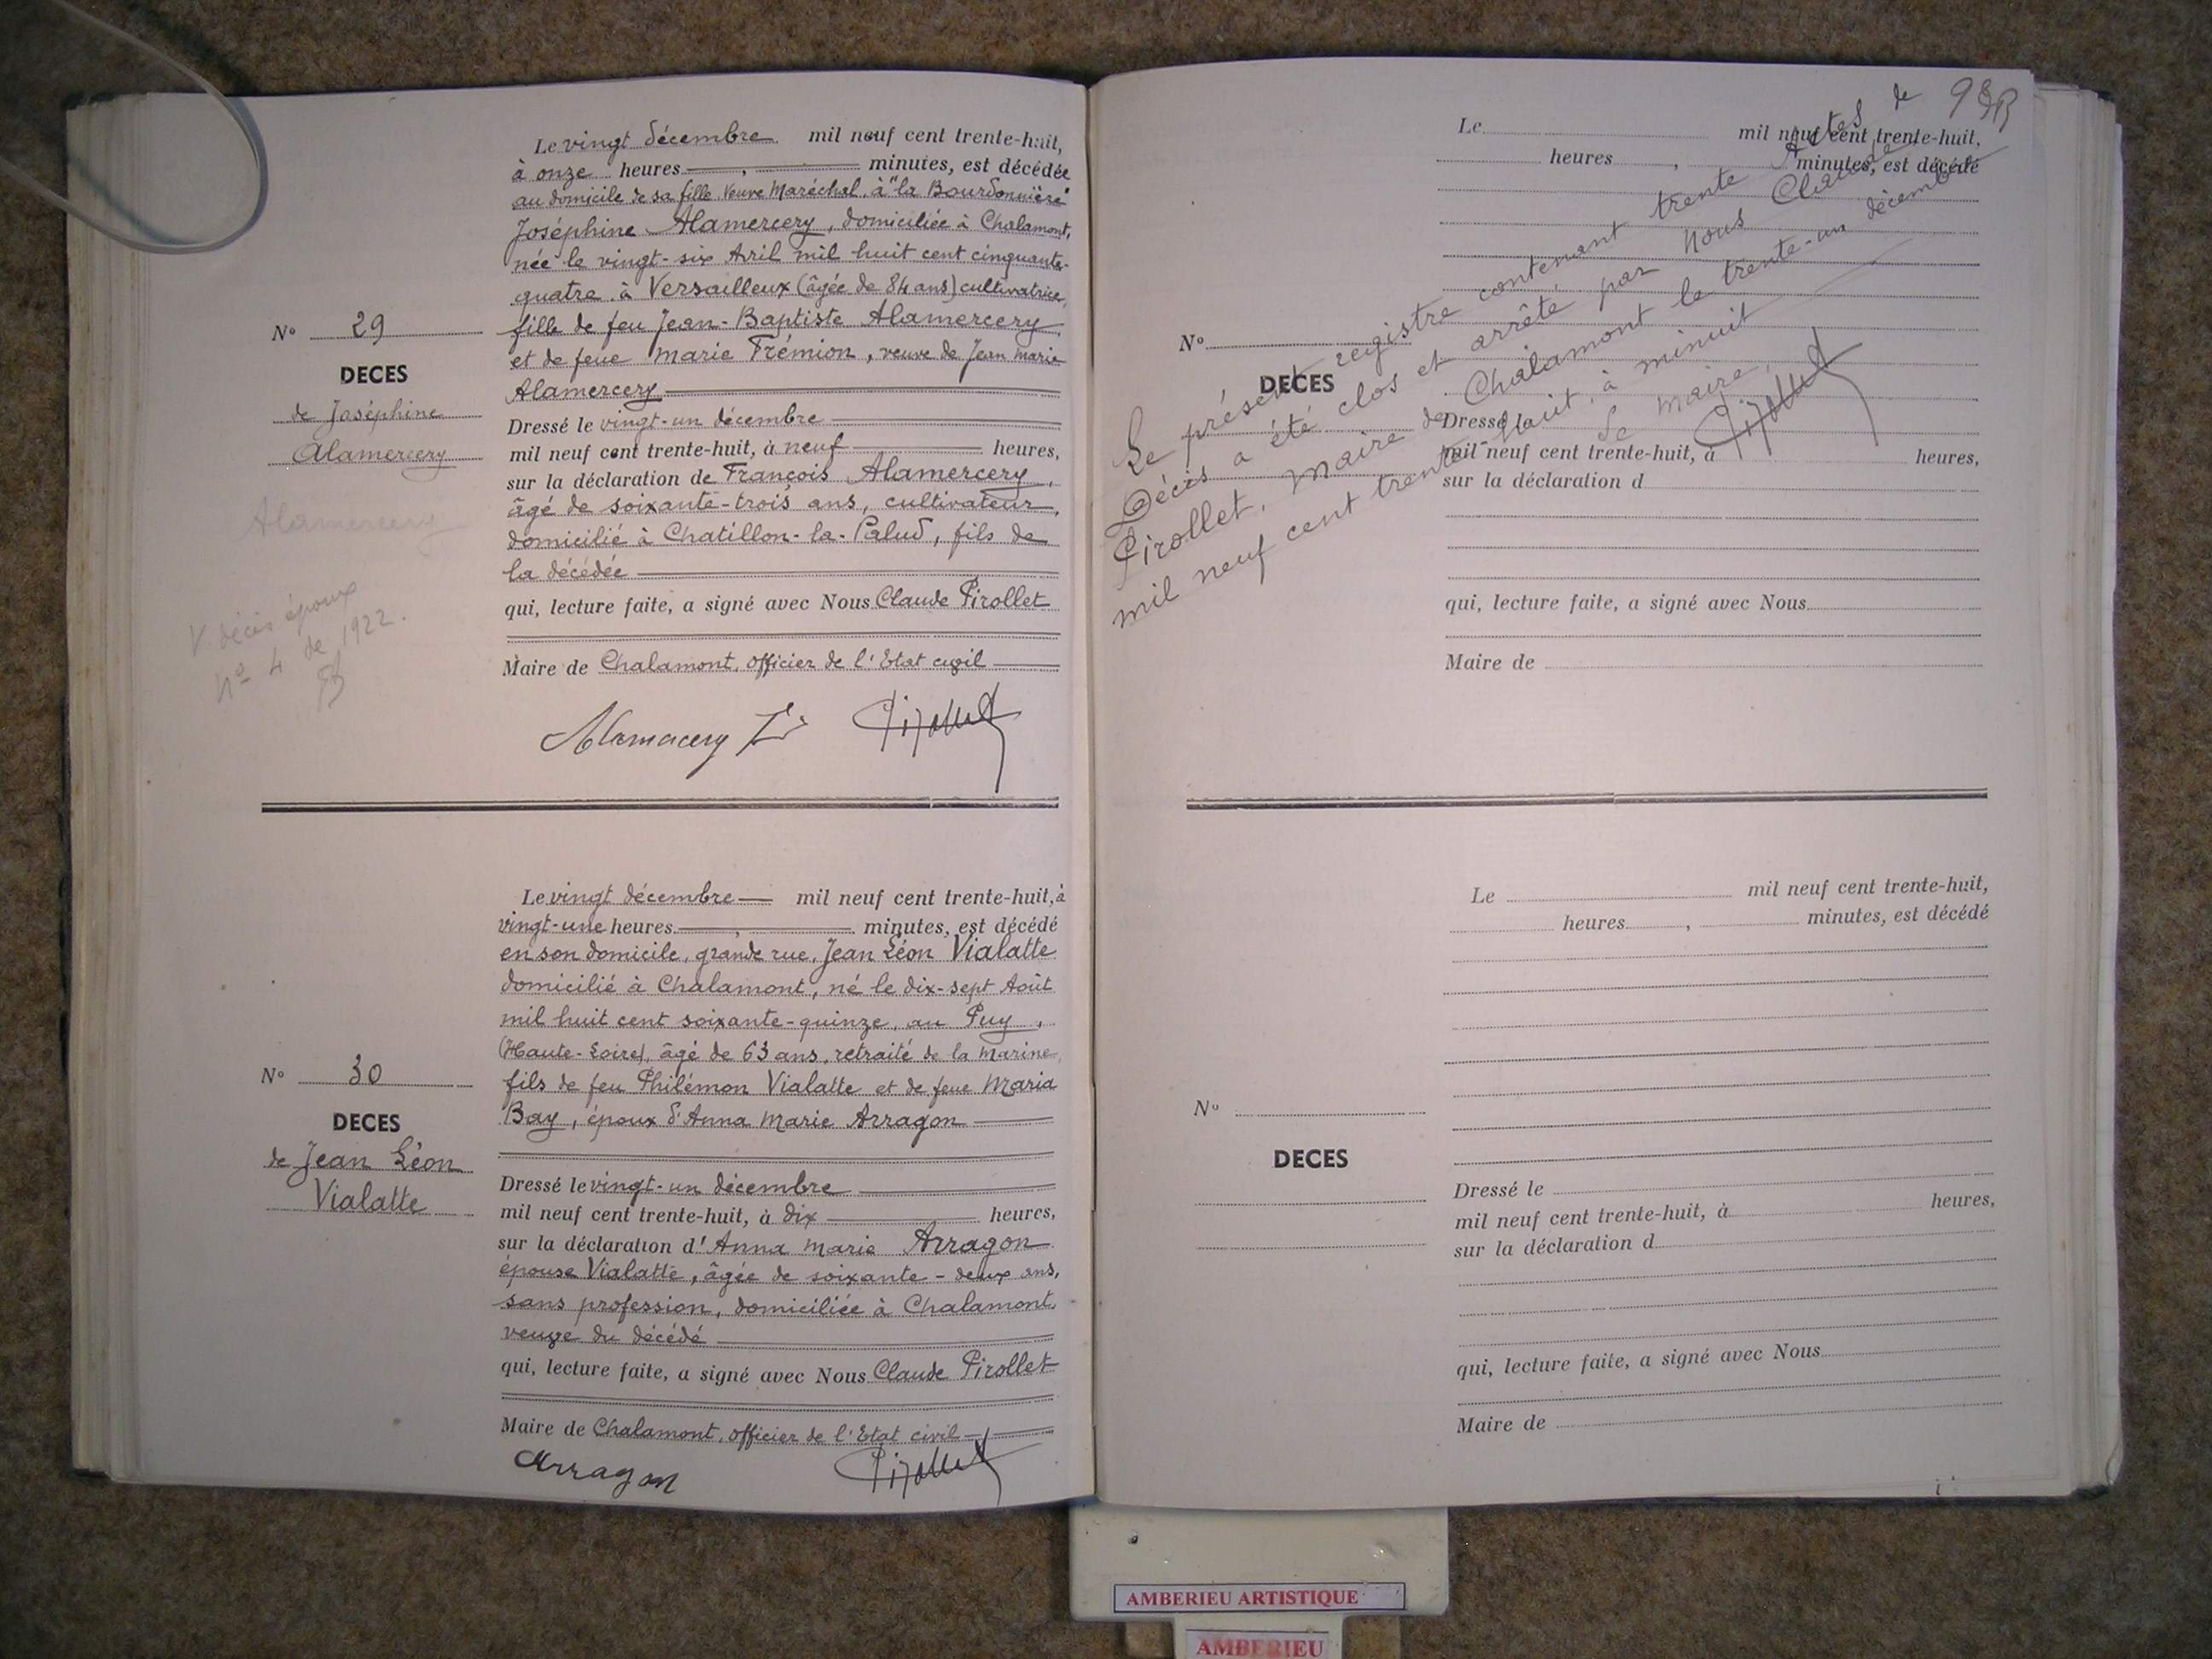 Le vingt décembre mil neuf cent trente-huit,
à onze heures , minutes, est décédée
au domicile de sa fille Veuve Maréchal, à "la Bourdonnière"
Joséphine Alamercery, domiciliée à Chalamont,
née le vingt-six Avril mil huit cent cinquante-
quatre à Versailleux (âgée de 84 ans) cultivatrice,
N° 29
DECES
de Joséphine
Alamercery
Alamercery
V. décès époux
n° 4 de 1922.
fille de feu Jean-Baptiste Alamercery,
et de feue Marie Trémion, veuve de Jean Marie
Alamercery
Dressé le vingt-un décembre
mil neuf cent trente-huit, à neuf heures,
sur la déclaration de François Alamercery,
âgé de soixante-trois ans, cultivateur,
domicilié à Chatillon-la-Palud, fils de
la décédée
qui, lecture faite, a signé avec Nous Claude Pirollet
Maire de Chalamont, officier de l'Etat civil
Alamercery Pirollet
Le vingt décembre mil neuf cent trente-huit, à
vingt-une heures , minutes, est décédé
en son domicile, grande rue, Jean Léon Vialatte
domicilié à Chalamont, né le dix-sept Août
mil huit cent soixante-quinze, au Puy,
(Haute-Loire), âgé de 63 ans, retraité de la Marine,
N° 30
DECES
de Jean Léon
Vialatte
fils de feu Philémon Vialatte et de feue Maria
Bay, époux d'Anna Marie Arragon
Dressé le vingt-un décembre
mil neuf cent trente-huit, à dix heures,
sur la déclaration d'Anna Marie Arragon
épouse Vialatte, âgée de soixante-deux ans,
sans profession, domiciliée à Chalamont,
veuve du décédé
qui, lecture faite, a signé avec Nous Claude Pirollet
Maire de Chalamont, officier de l'Etat civil
Arragon Pirollet
93
Le présent registre contenant trente Actes de
Décès a été clos et arrêté par Nous Claude
Pirollet, Maire de Chalamont le trente-un décembre
mil neuf cent trente-huit, à minuit
Le Maire,
Pirollet
Le mil neuf cent trente-huit,
heures , minutes, est décédé
N°
DECES
Dressé le
mil neuf cent trente-huit, à heures,
sur la déclaration d
qui, lecture faite, a signé avec Nous
Maire de
Le mil neuf cent trente-huit,
heures , minutes, est décédé
N°
DECES
Dressé le
mil neuf cent trente-huit, à heures,
sur la déclaration d
qui, lecture faite, a signé avec Nous
Maire de
AMBERIEU ARTISTIQUE
AMBERIEU